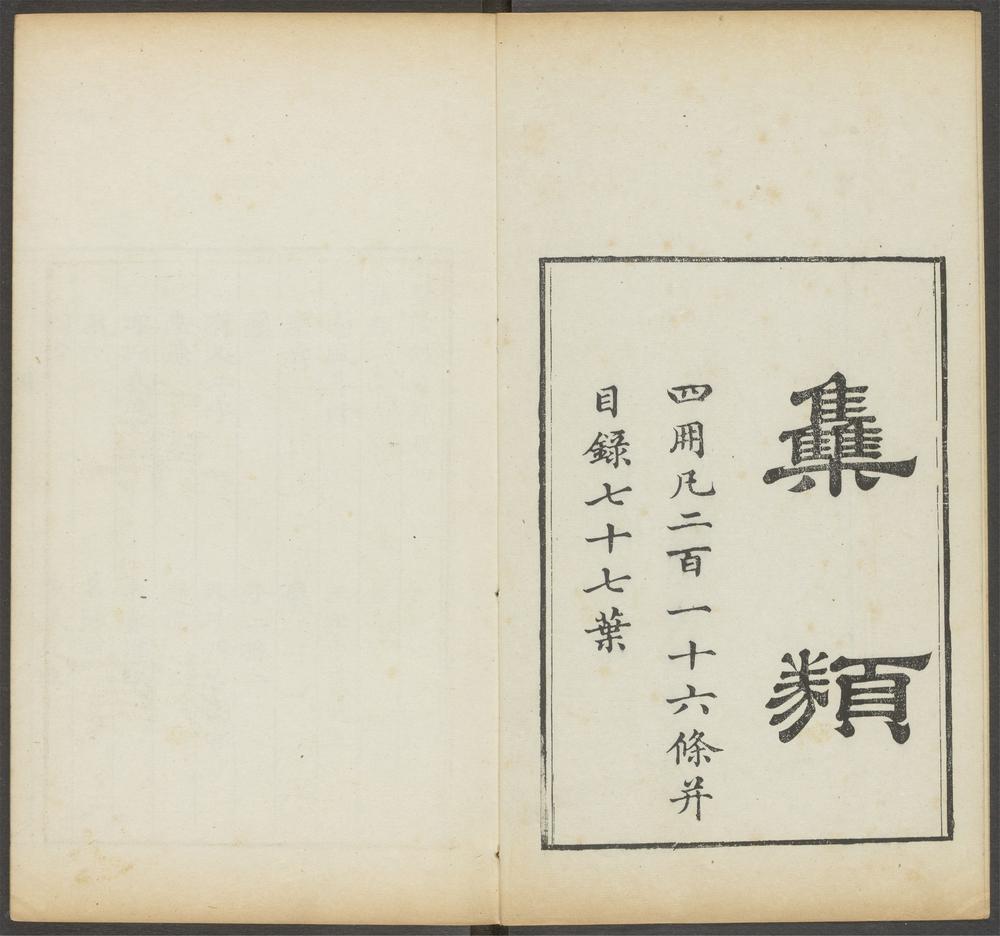 雧類
四冊凡二百一十六條并
目錄七十七葉